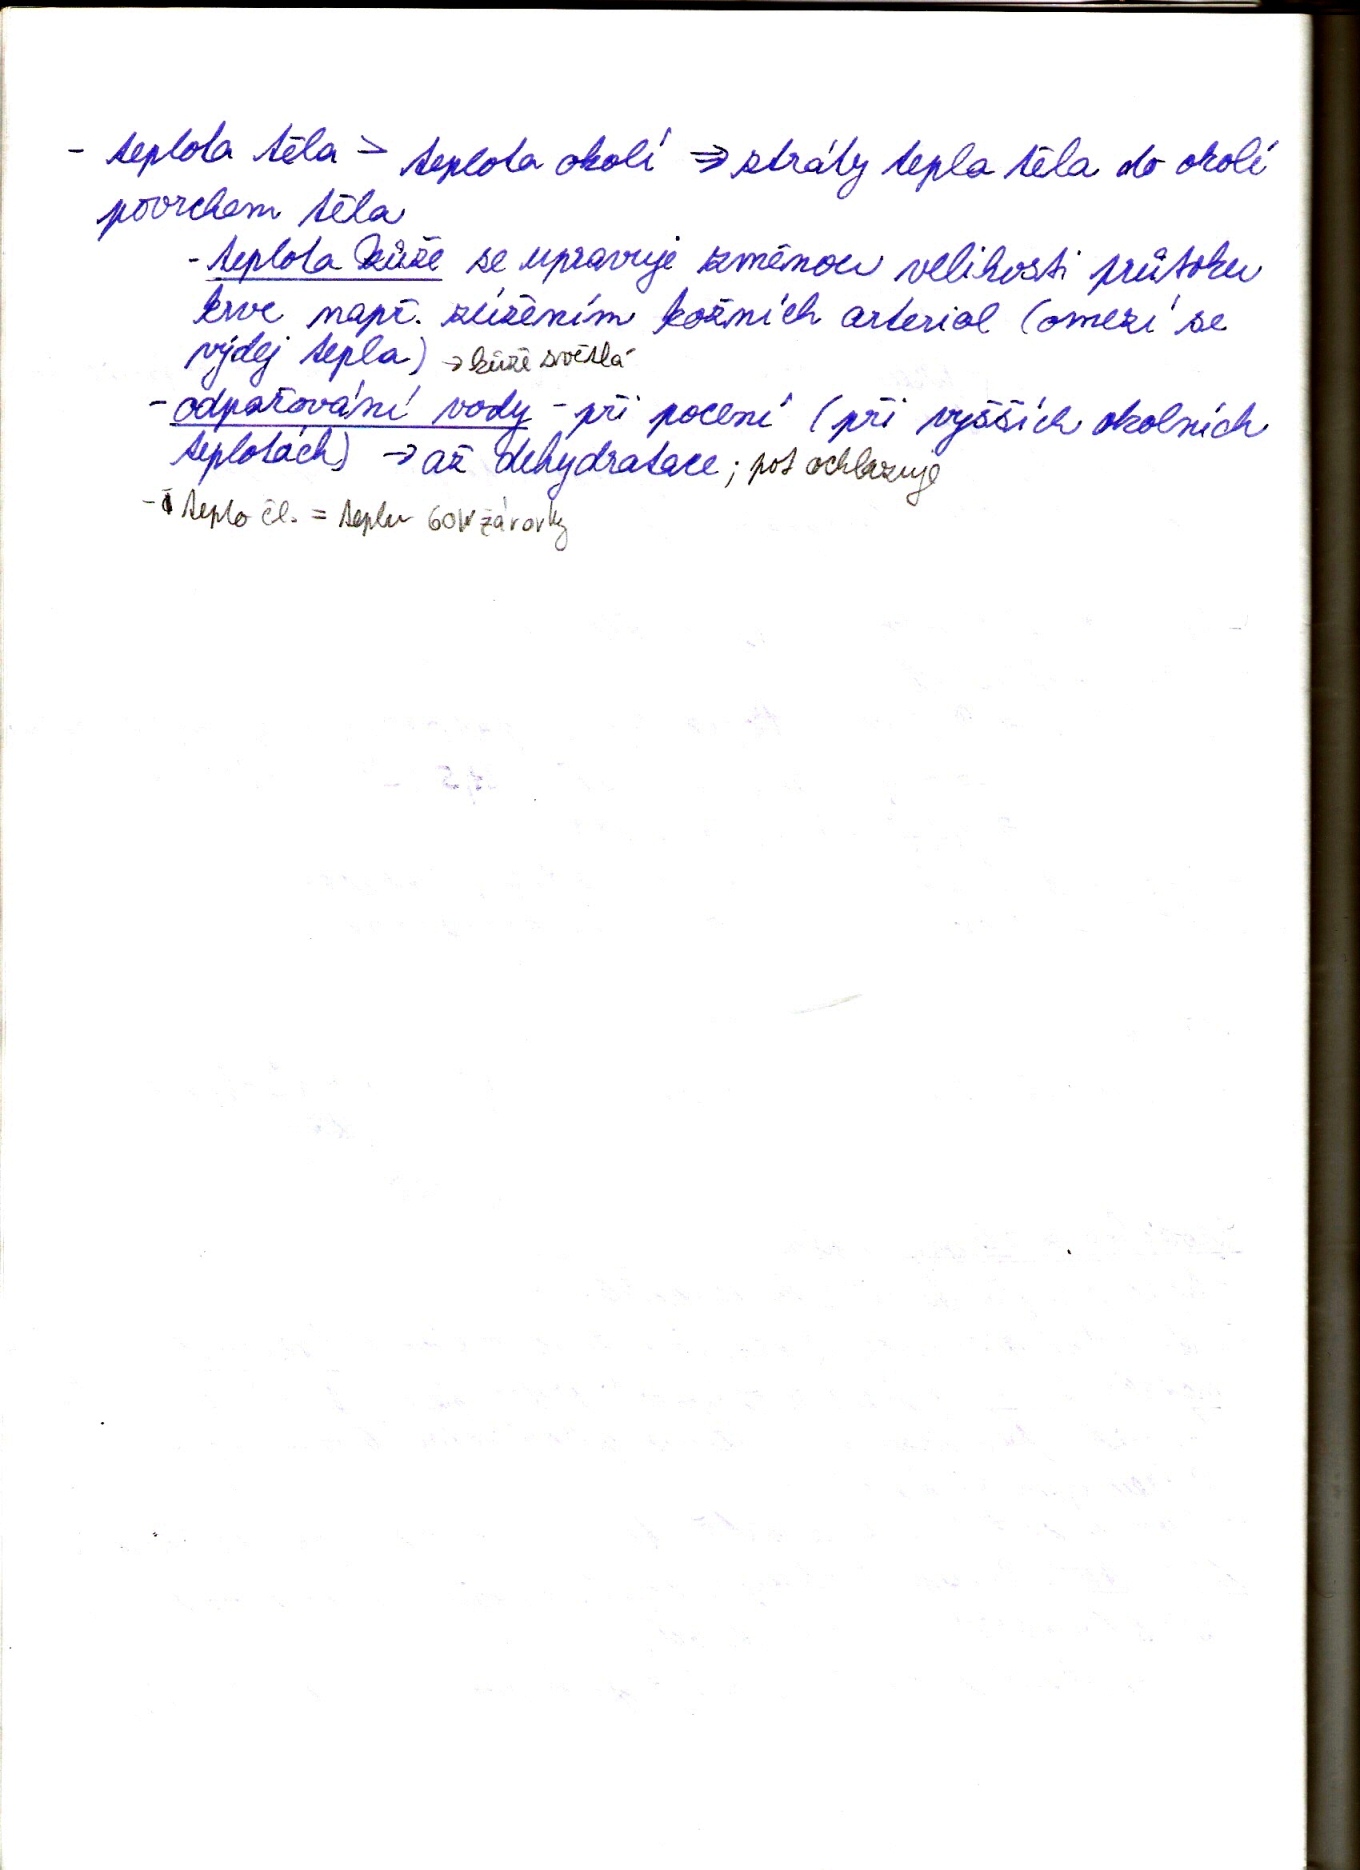 - teplota těla > teplota okolí ⇒ ztráty tepla těla do okolí
povrchem těla
- teplota kůže se upravuje změnou velikosti průtoku
krve např. zúžením kožních arteriol (omezí se
výdej tepla) → kůže světlá
- odpařování vody - při pocení (při vyšších okolních
teplotách) → až dehydratace; pot ochlazuje
- teplo čl. = teplu 60W žárovky